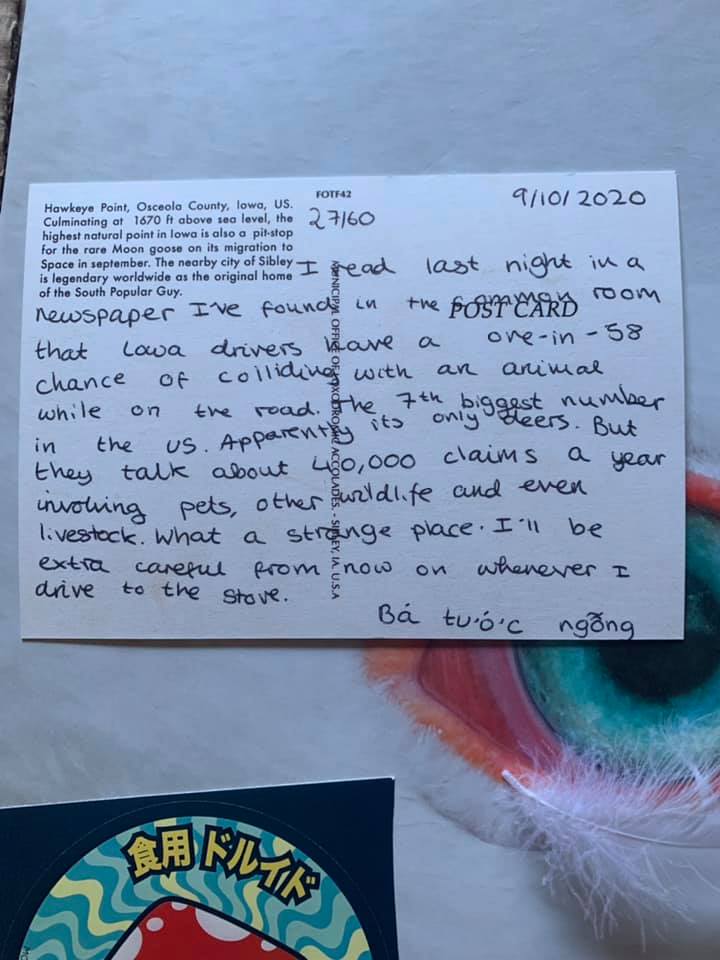 Hawkeye Point, Osceola County, Iowa, US.
Culminating at 1670 ft above sea level, the
highest natural point in Iowa is also a pit-stop
for the rare Moon goose on its migration to
Space in september. The nearby city of Sibley
is legendary worldwide as the original home
of the South Popular Guy.
FOTF42
27/60
9/10/2020
POST CARD
MUNICIPAL OFFICE OF LOXODROMIC ACCOLADES - SIBLEY, IA, U.S.A
I read last night in a
newspaper I've found in the common room
that Iowa drivers have a one-in-58
chance of colliding with an animal
while on the road. The 7th biggest number
in the US. Apparently its only deers. But
they talk about 40,000 claims a year
involving pets, other wildlife and even
livestock. What a strange place. I'll be
extra careful from now on whenever I
drive to the store.
Bá tước ngỗng
食用 ドルイド